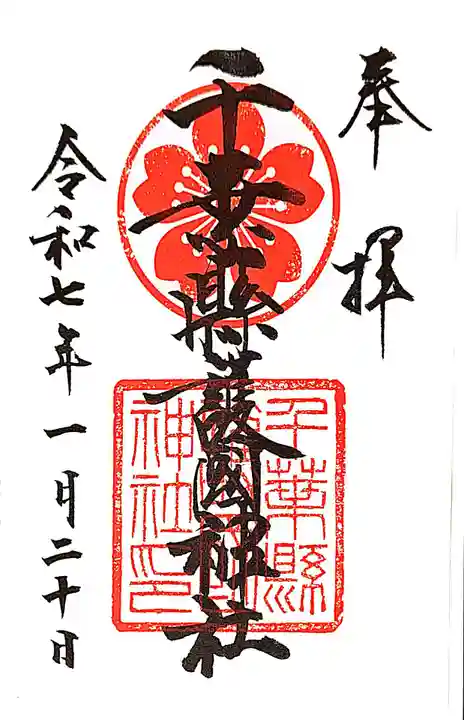 奉拝
千葉縣護國神社
千葉縣
護國
神社印
令和七年一月二十日